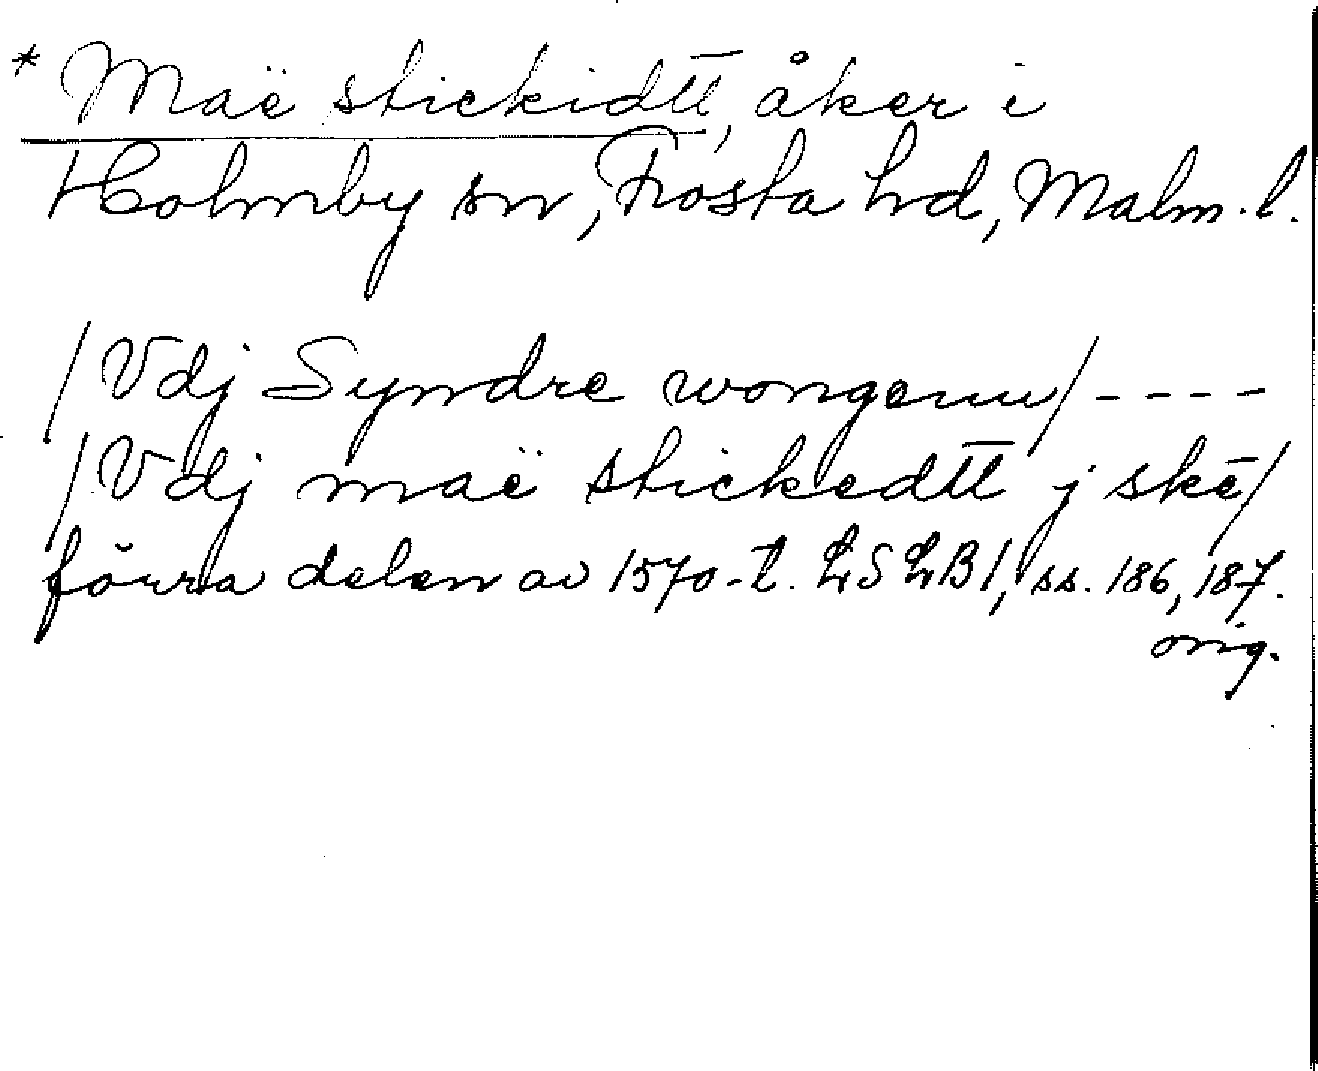 * Maë stickidtt̄, åker i
Holmby sn, Frosta hd, Malm. l.
/Vdj Syndre wongenn/----
/Vdj maë stickedtt̄ j skē/
förra delen av 1570-t. LSLB1, ss. 186, 187.
orig.